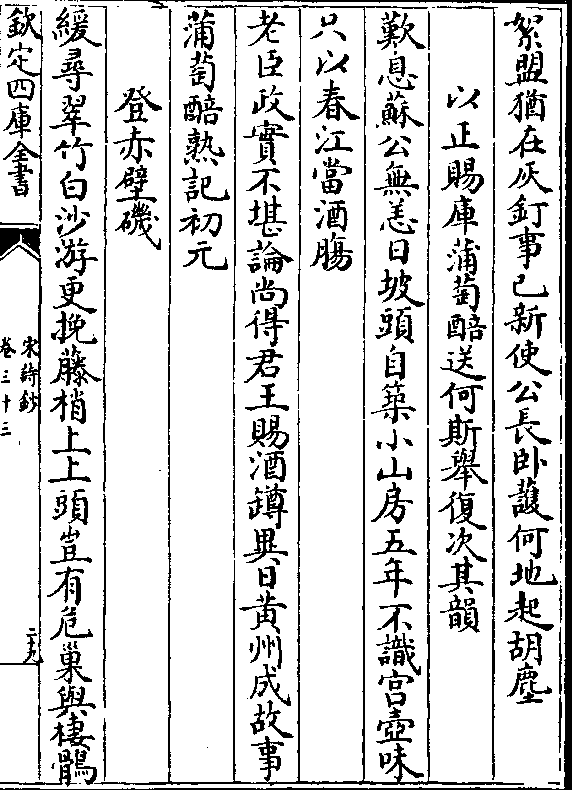 絮盟猶在灰釘事已新使公長卧護何地起胡塵
以正賜庫蒲萄醅送何斯舉復次其韻
歎息蘇公無恙日坡頭自築小山房五年不識宫壺味
只以春江當酒膓
老臣政實不堪論尚得君王賜酒罇異日黄州成故事
蒲萄醅熟記初元
登赤壁磯
緩尋翠竹白沙游更挽藤梢上上頭豈有危巢與棲鶻
欽定四庫全書
宋詩鈔
卷三十三
二十九